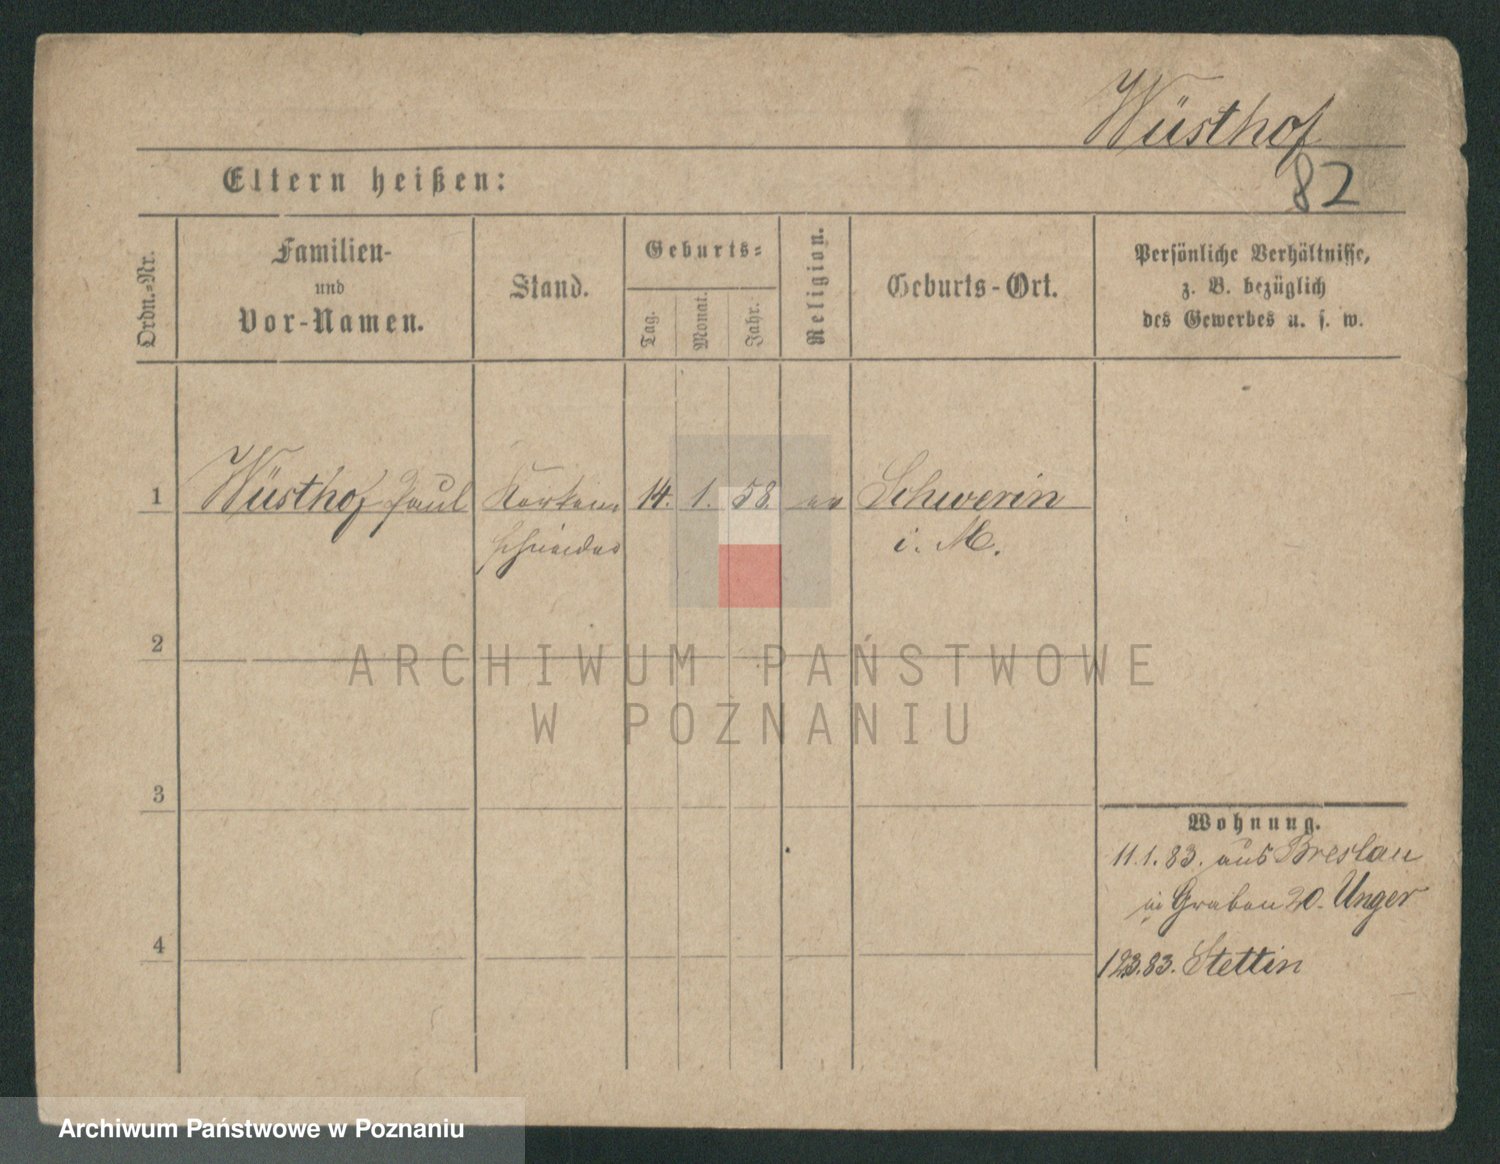 Wüsthof
82
Eltern heißen:
Ordn.-Nr.
Familien-
und
Vor-Namen.
Stand.
Geburts-
Tag.
Monat.
Jahr.
Religion.
Geburts-Ort.
Persönliche Verhältnisse,
z. B. bezüglich
des Gewerbes u. s. w.
1 Wüsthof Paul Korken- 14. 1. 58. ev Schwerin
schneider i. M.
2
ARCHIWUM PAŃSTWOWE
W POZNANIU
3
Wohnung.
11.1.83. aus Breslau
in Graben 20. Unger
4
12.3.83. Stettin
Archiwum Państwowe w Poznaniu